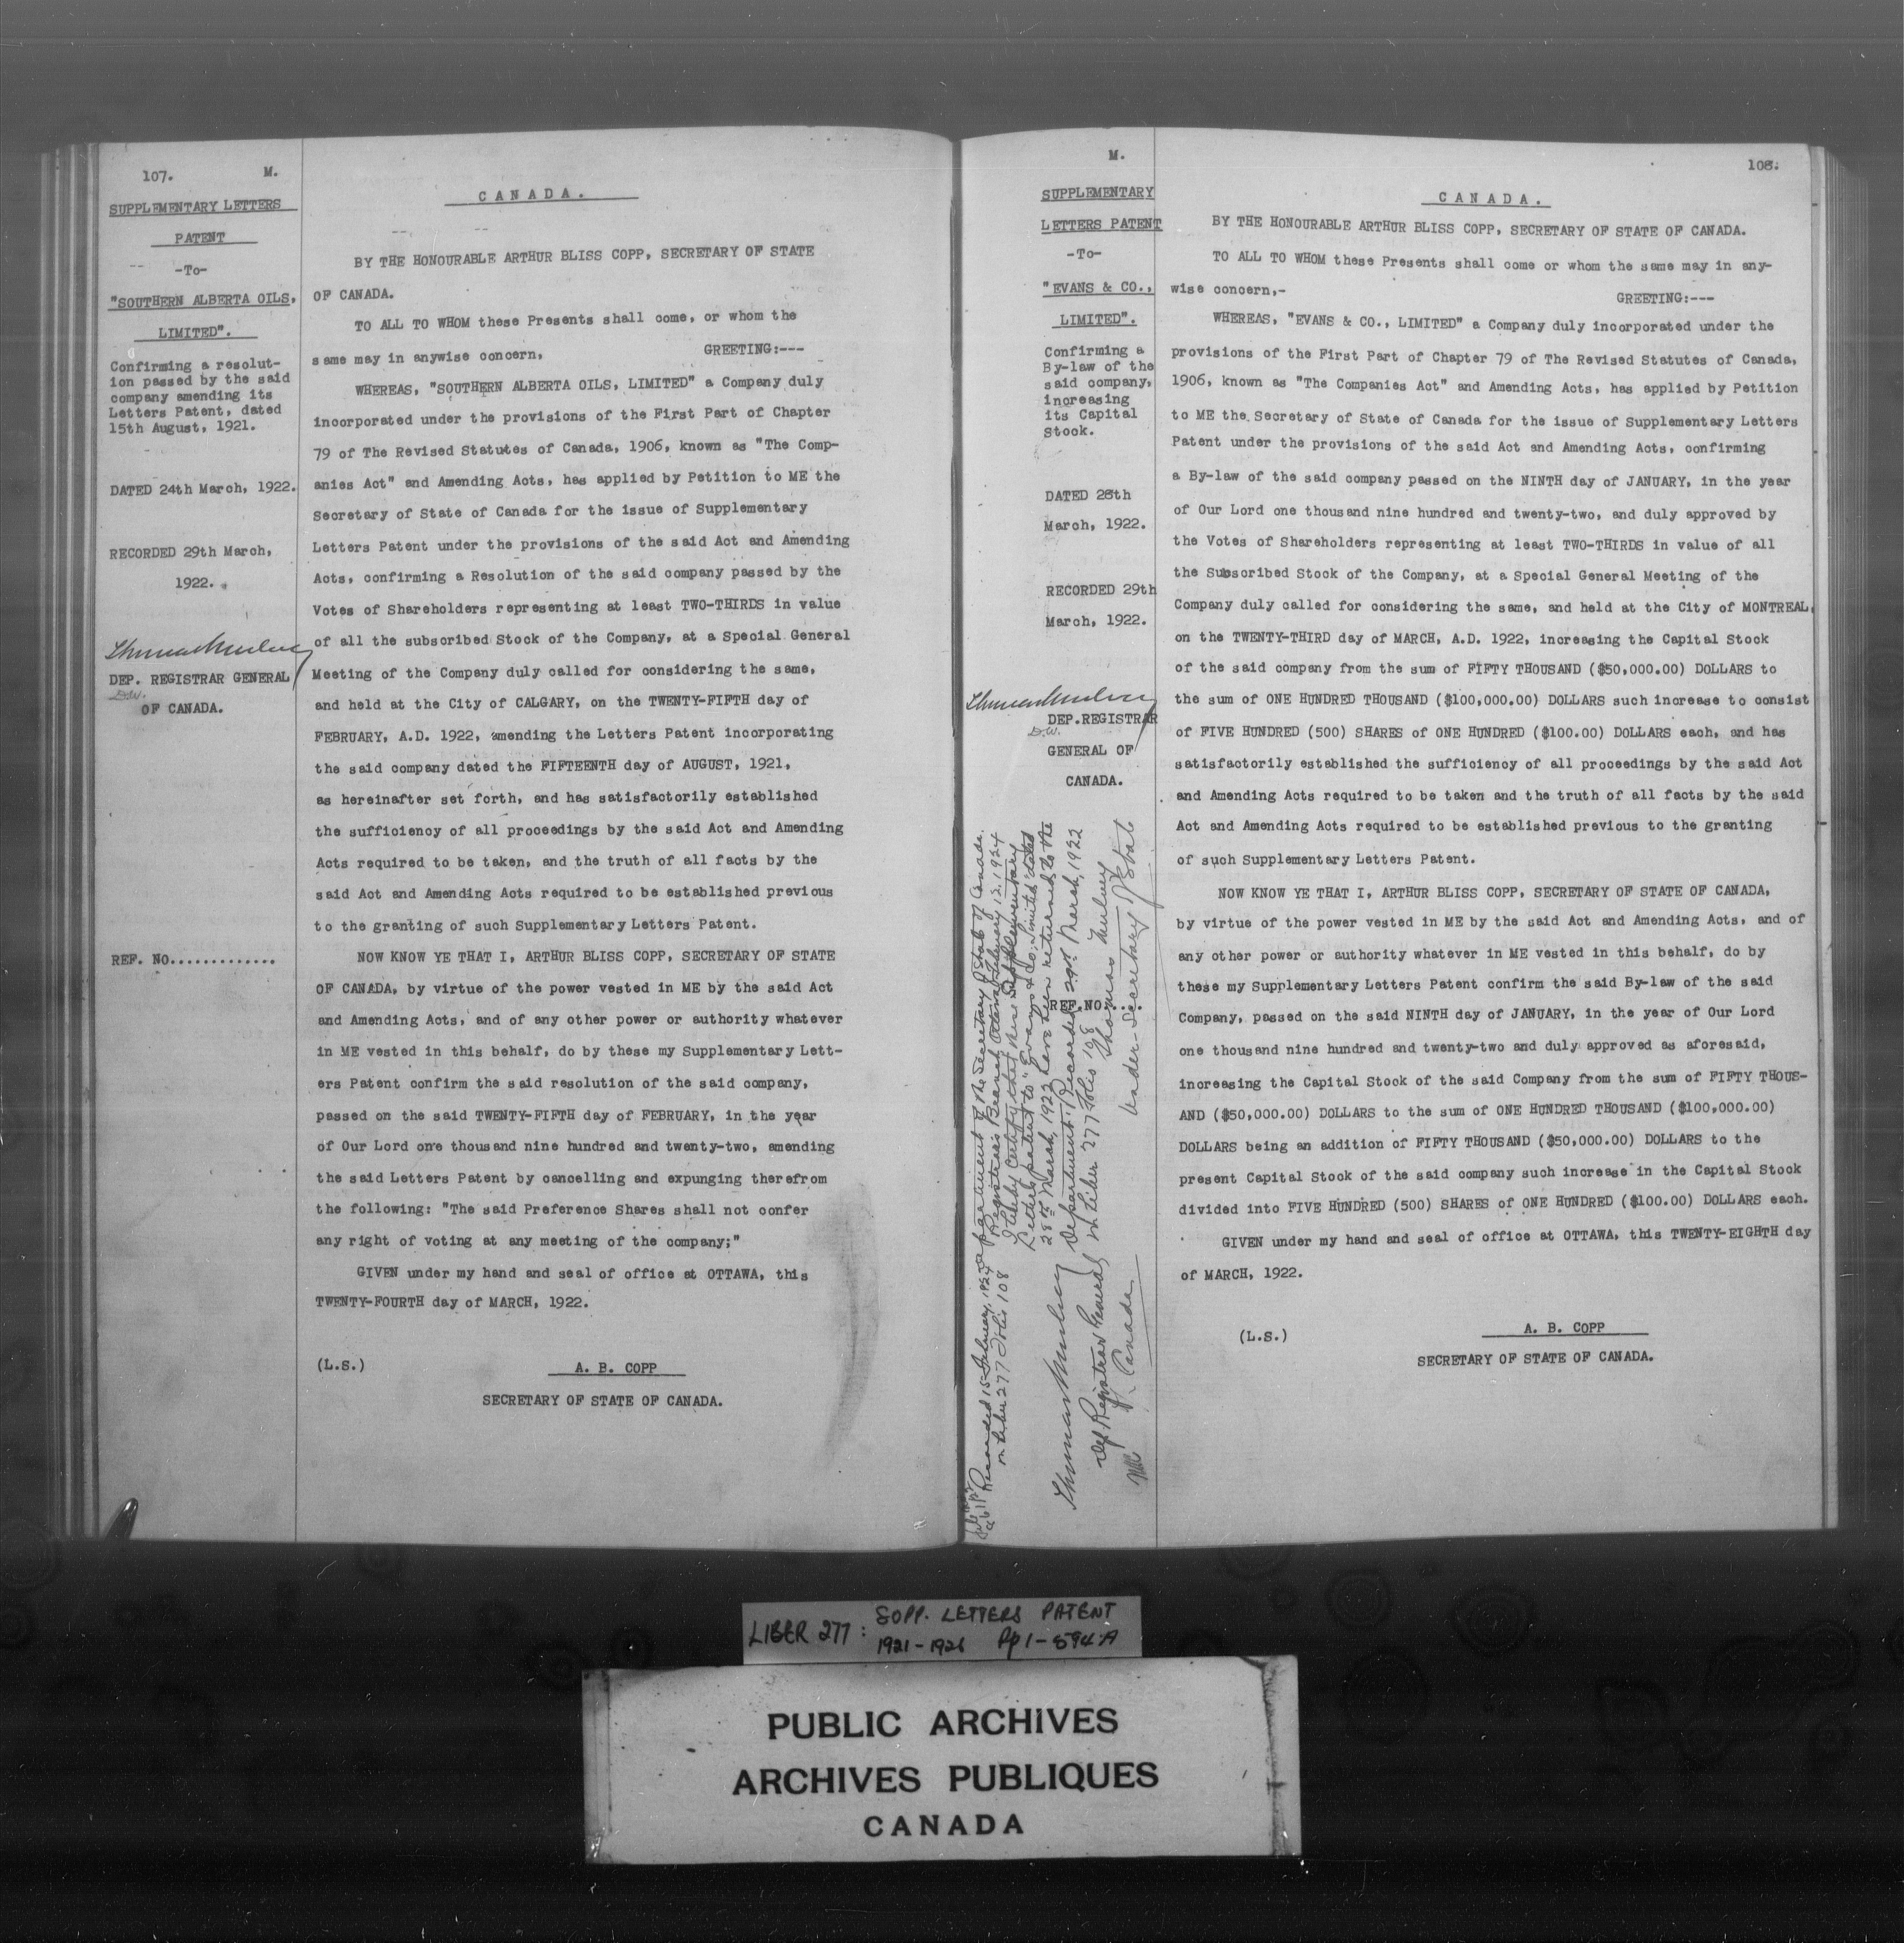 107. M.
SUPPLEMENTARY LETTERS
PATENT
-To-
"SOUTHERN ALBERTA OILS,
LIMITED".
Confirming a resolut-
ion passed by the said
company amending its
Letters Patent, dated
15th August, 1921.
DATED 24th March, 1922.
RECORDED 29th March,
1922.
Thomas Mulvey
DEP. REGISTRAR GENERAL
D.W.
OF CANADA.
REF. NO.............
CANADA.
BY THE HONOURABLE ARTHUR BLISS COPP, SECRETARY OF STATE
OF CANADA.
TO ALL TO WHOM these Presents shall come, or whom the
same may in anywise concern, GREETING:---
WHEREAS, "SOUTHERN ALBERTA OILS, LIMITED" a Company duly
incorporated under the provisions of the First Part of Chapter
79 of The Revised Statutes of Canada, 1906, known as "The Comp-
anies Act" and Amending Acts, has applied by Petition to ME the
Secretary of State of Canada for the issue of Supplementary
Letters Patent under the provisions of the said Act and Amending
Acts, confirming a Resolution of the said company passed by the
Votes of Shareholders representing at least TWO-THIRDS in value
of all the subscribed Stock of the Company, at a Special General
Meeting of the Company duly called for considering the same,
and held at the City of CALGARY, on the TWENTY-FIFTH day of
FEBRUARY, A.D. 1922, amending the Letters Patent incorporating
the said company dated the FIFTEENTH day of AUGUST, 1921,
as hereinafter set forth, and has satisfactorily established
the sufficiency of all proceedings by the said Act and Amending
Acts required to be taken, and the truth of all facts by the
said Act and Amending Acts required to be established previous
to the granting of such Supplementary Letters Patent.
NOW KNOW YE THAT I, ARTHUR BLISS COPP, SECRETARY OF STATE
OF CANADA, by virtue of the power vested in ME by the said Act
and Amending Acts, and of any other power or authority whatever
in ME vested in this behalf, do by these my Supplementary Lett-
ers Patent confirm the said resolution of the said company,
passed on the said TWENTY-FIFTH day of FEBRUARY, in the year
of Our Lord one thousand nine hundred and twenty-two, amending
the said Letters Patent by cancelling and expunging therefrom
the following: "The said Preference Shares shall not confer
any right of voting at any meeting of the company;"
GIVEN under my hand and seal of office at OTTAWA, this
TWENTY-FOURTH day of MARCH, 1922.
(L.S.) A. B. COPP
SECRETARY OF STATE OF CANADA.
M. 108.
SUPPLEMENTARY
LETTERS PATENT
-To-
"EVANS & CO.,
LIMITED".
Confirming a
By-law of the
said company,
increasing
its Capital
Stock.
DATED 28th
March, 1922.
RECORDED 29th
March, 1922.
Thomas Mulvey
DEP.REGISTRAR
D.W.
GENERAL OF
CANADA.
REF.NO....
Department of the Secretary of State of Canada.
Registrar's Branch, Ottawa, February 12, 1924
I hereby certify that these Supplementary
Letters patent to "Evans & Co. Limited" dated
28th March, 1922 have been returned to the
Department. Recorded 29th March, 1922
in Liber 277 Folio 108
Thomas Mulvey
Under-Secretary of State
Recorded 15 February, 1924
in Liber 277 Folio 108
Thomas Mulvey
Dep Registrar General
of Canada
CANADA.
BY THE HONOURABLE ARTHUR BLISS COPP, SECRETARY OF STATE OF CANADA.
TO ALL TO WHOM these Presents shall come or whom the same may in any-
wise concern,-
GREETING:---
WHEREAS, "EVANS & CO., LIMITED" a Company duly incorporated under the
provisions of the First Part of Chapter 79 of The Revised Statutes of Canada,
1906, known as "The Companies Act" and Amending Acts, has applied by Petition
to ME the Secretary of State of Canada for the issue of Supplementary Letters
Patent under the provisions of the said Act and Amending Acts, confirming
a By-law of the said company passed on the NINTH day of JANUARY, in the year
of Our Lord one thousand nine hundred and twenty-two, and duly approved by
the Votes of Shareholders representing at least TWO-THIRDS in value of all
the Subscribed Stock of the Company, at a Special General Meeting of the
Company duly called for considering the same, and held at the City of MONTREAL,
on the TWENTY-THIRD day of MARCH, A.D. 1922, increasing the Capital Stock
of the said company from the sum of FIFTY THOUSAND ($50,000.00) DOLLARS to
the sum of ONE HUNDRED THOUSAND ($100,000.00) DOLLARS such increase to consist
of FIVE HUNDRED (500) SHARES of ONE HUNDRED ($100.00) DOLLARS each, and has
satisfactorily established the sufficiency of all proceedings by the said Act
and Amending Acts required to be taken and the truth of all facts by the said
Act and Amending Acts required to be established previous to the granting
of such Supplementary Letters Patent.
NOW KNOW YE THAT I, ARTHUR BLISS COPP, SECRETARY OF STATE OF CANADA,
by virtue of the power vested in ME by the said Act and Amending Acts, and of
any other power or authority whatever in ME vested in this behalf, do by
these my Supplementary Letters Patent confirm the said By-law of the said
Company, passed on the said NINTH day of JANUARY, in the year of Our Lord
one thousand nine hundred and twenty-two and duly approved as aforesaid,
increasing the Capital Stock of the said Company from the sum of FIFTY THOUS-
AND ($50,000.00) DOLLARS to the sum of ONE HUNDRED THOUSAND ($100,000.00)
DOLLARS being an addition of FIFTY THOUSAND ($50,000.00) DOLLARS to the
present Capital Stock of the said company such increase in the Capital Stock
divided into FIVE HUNDRED (500) SHARES of ONE HUNDRED ($100.00) DOLLARS each.
GIVEN under my hand and seal of office at OTTAWA, this TWENTY-EIGHTH day
of MARCH, 1922.
(L.S.) A. B. COPP
SECRETARY OF STATE OF CANADA.
LIBER 277: SUPP. LETTERS PATENT
1921-1926 Pp 1-594A
PUBLIC ARCHIVES
ARCHIVES PUBLIQUES
CANADA